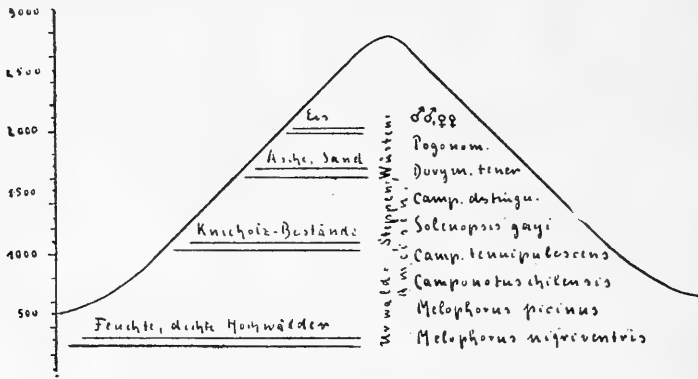 3000
2500
2000
1500
1000
500
Eis
Asche, Sand
Knieholz-Bestände
Feuchte, dichte Hochwälder
Urwald-, Steppen, Wüsten-
Ameisen.
♂♂,♀♀
Pogonom.
Dorym. tener
Camp. distingu.
Solenopsis gayi
Camp. tenuipubescens
Camponotus chilensis
Melophorus picinus
Melophorus nigriventris